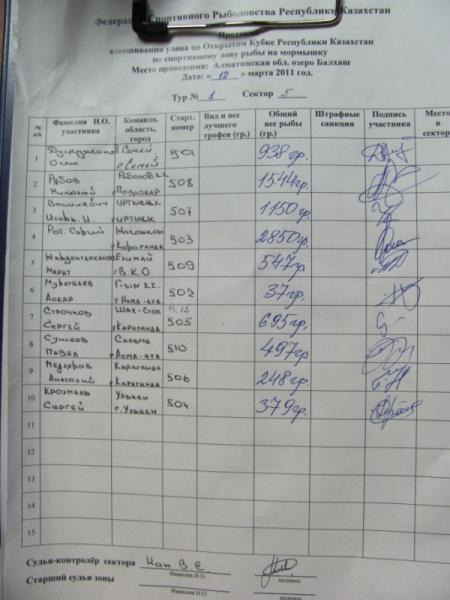 Спортивного Рыболовства Республики Казахстан
взвешивания улова на Открытом Кубке Республики Казахстан
по спортивному лову рыбы на мормышку
Место проведения: Алматинская обл. озеро Балхаш
Дата: «12» марта 2011 год.
Тур № 1 Сектор 5
№ п/п Фамилия И.О. участника Команда, область, город Старт. номер Вид и вес лучшего трофея (гр.) Общий вес рыбы (гр.) Штрафные санкции Подпись участника Место в сектор
1 Семей 501 938 гр.
2 Николай г. Павлодар 508 1544 гр.
3 Василевич Игорь И. Иртышск 507 1150 гр.
4 Рот Сергей г. Караганда 503 2850 гр.
5 Марат В.К.О 509 547 гр.
6 Аскар г. Алма-ата 502 37 гр.
7 Строчков Сергей г. Караганда 505 695 гр.
8 Сушков Павел г. Алма-ата 510 497 гр.
9 Анатолий Караганда г. Караганда 506 248 гр.
10 Крохмаль Сергей Улькен г. Улькен 504 379 гр.
11
12
13
14
15
Судья-контролёр сектора Кан В. Е.
Фамилия И.О. подпись
Старший судья зоны
Фамилия И.О. подпись